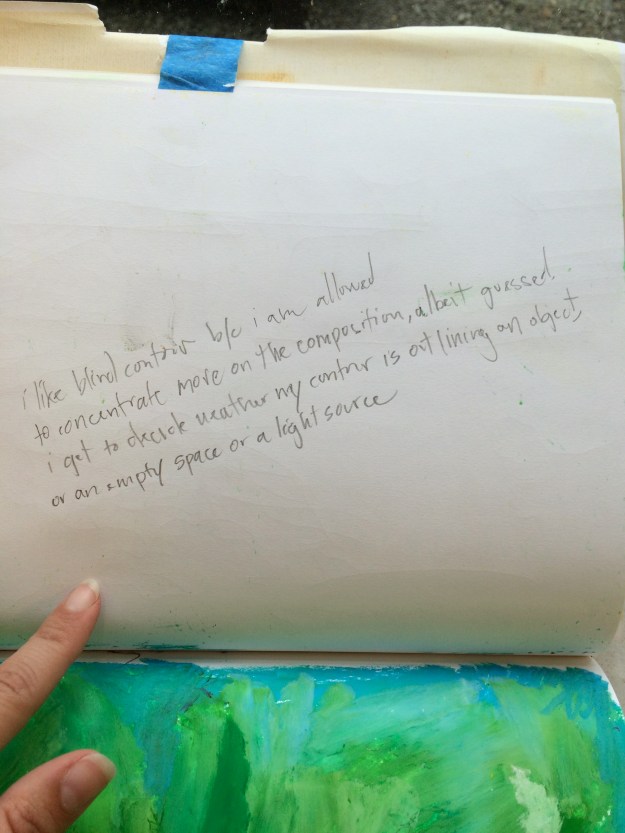 i like blind contour b/c i am allowed
to concentrate more on the composition, albeit guessed.
i get to decide weather my contour is outlining an object,
or an empty space or a light source